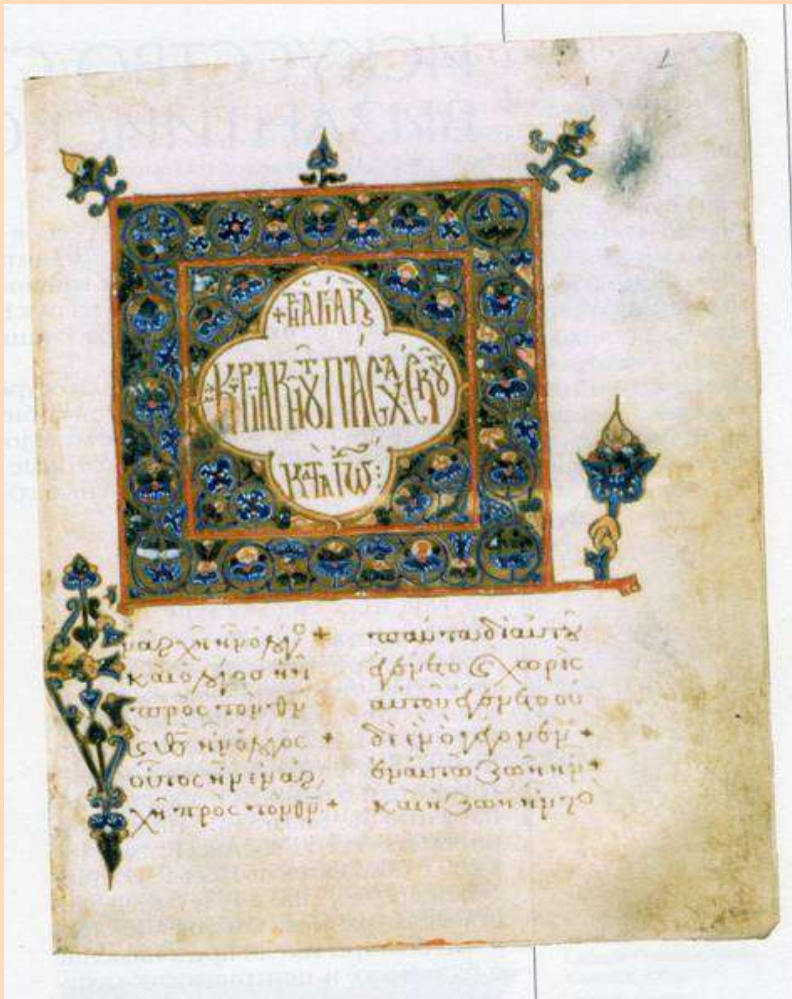 + τῆ ἁγία κ̣ς
κυριακῆ τοῦ πάσχα ἐκ τοῦ
κατὰ ἰω:
ναρχῆ ἦν ὁ λόγο +
καὶ ὁ λόγος ἦν
πρὸς τὸν θν
καὶ θς ἦν ὁ λόγος +
οὗτος ἦν ἐν αρ
χῆ προς τὸν θν +
παντα δι αυτου
ἐγένετο καὶ χωρὶς
αυτοῦ ἐγένετο οὐ
δὲ ἐν ὃ γέγονεν +
ἐν αυτῶ ζωὴ ἦν +
καὶ ἡ ζωὴ ἦν το